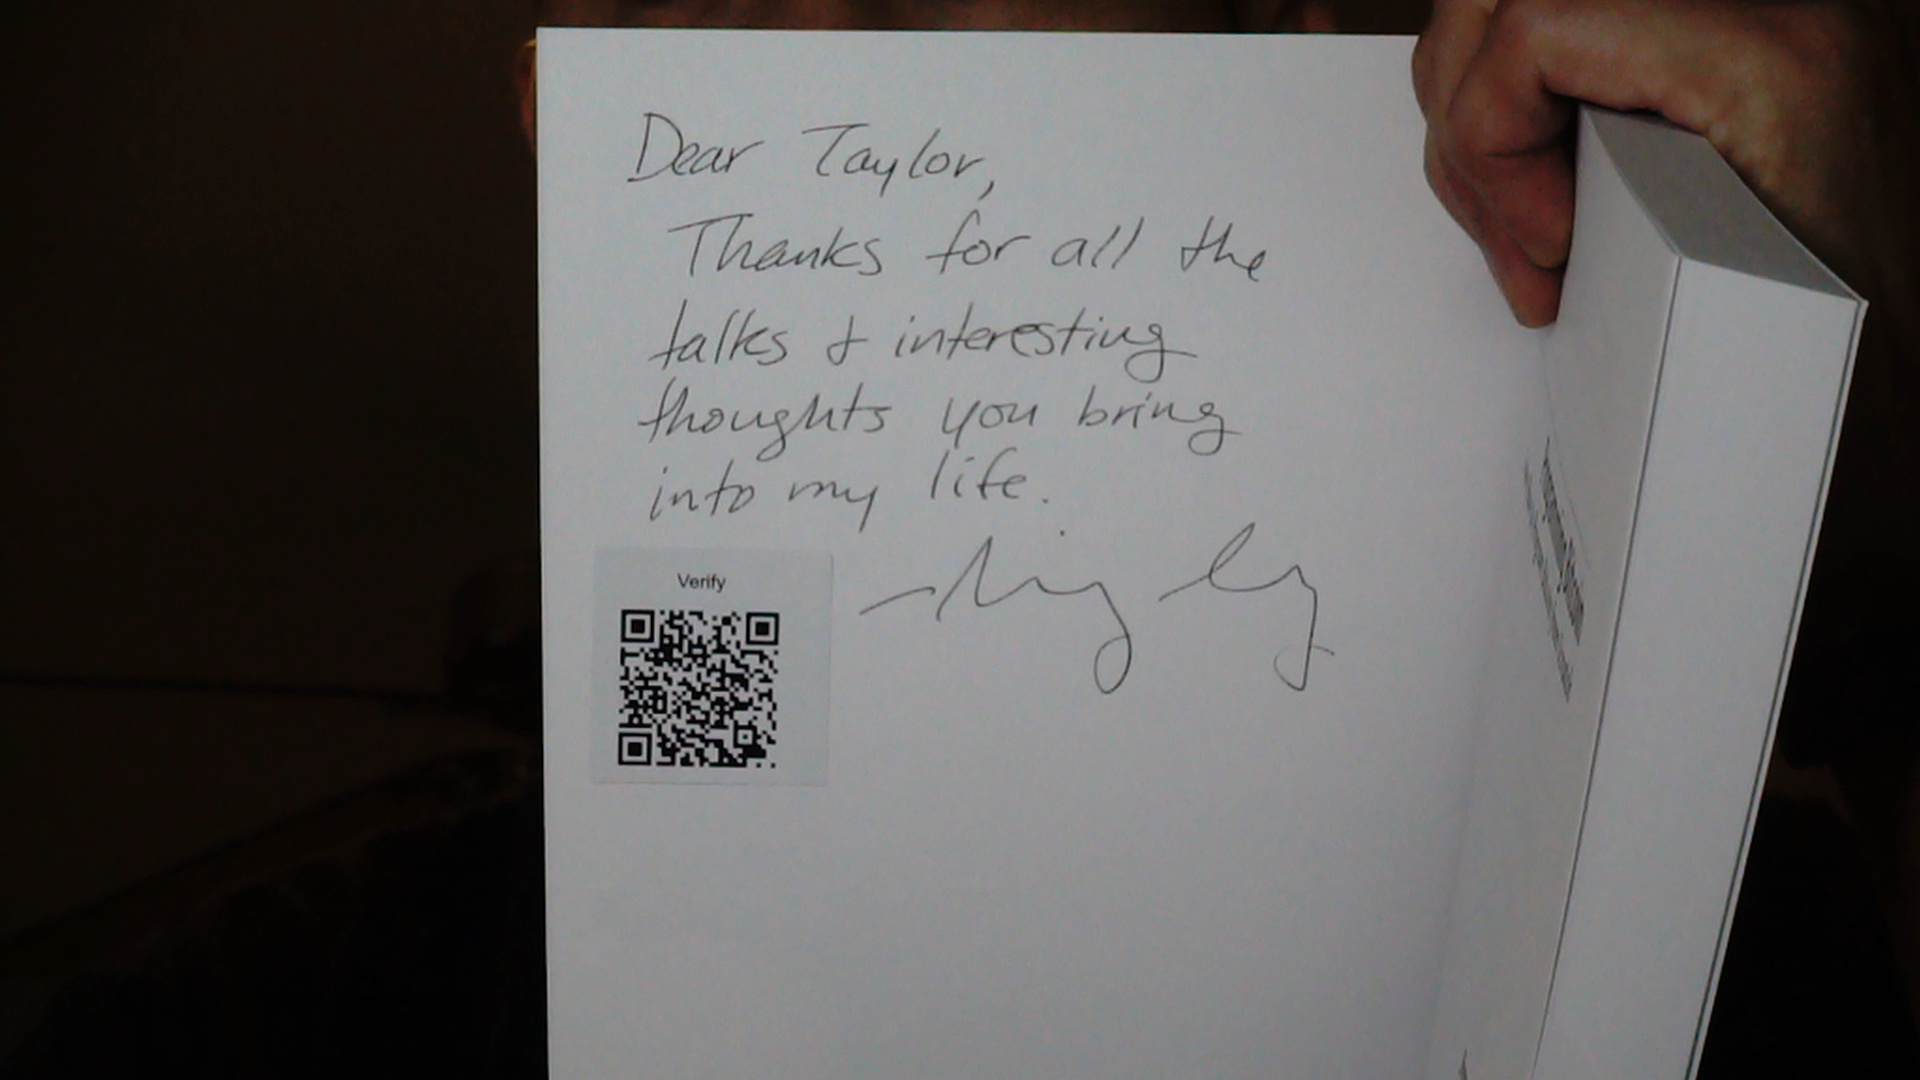 Dear Taylor,
Thanks for all the
talks & interesting
thoughts you bring
into my life.
Verify